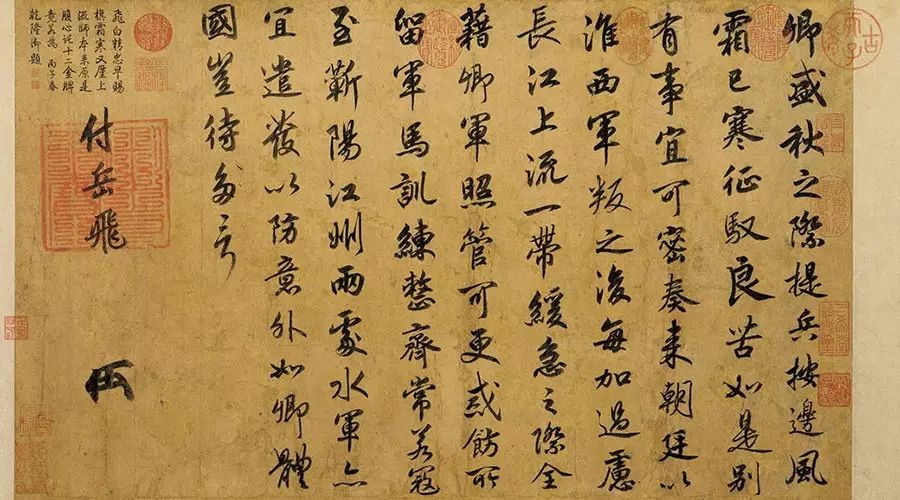 卿盛秋之際提兵按邊風
霜已寒征馭良苦如是別
有事宜可密奏來朝廷以
淮西軍叛之後每加過慮
長江上流一帶緩急之際全
藉卿軍照管可更戒飭所
留軍馬訓練整齊常若寇
至蘄陽江州兩處水軍亦
宜遣發以防意外如卿體
國豈待多言
付岳飛
飛白精忠早賜
旗霜寒又歷上
遊師本來原是
腹心託十二金牌
竟若為 丙子春
乾隆御題